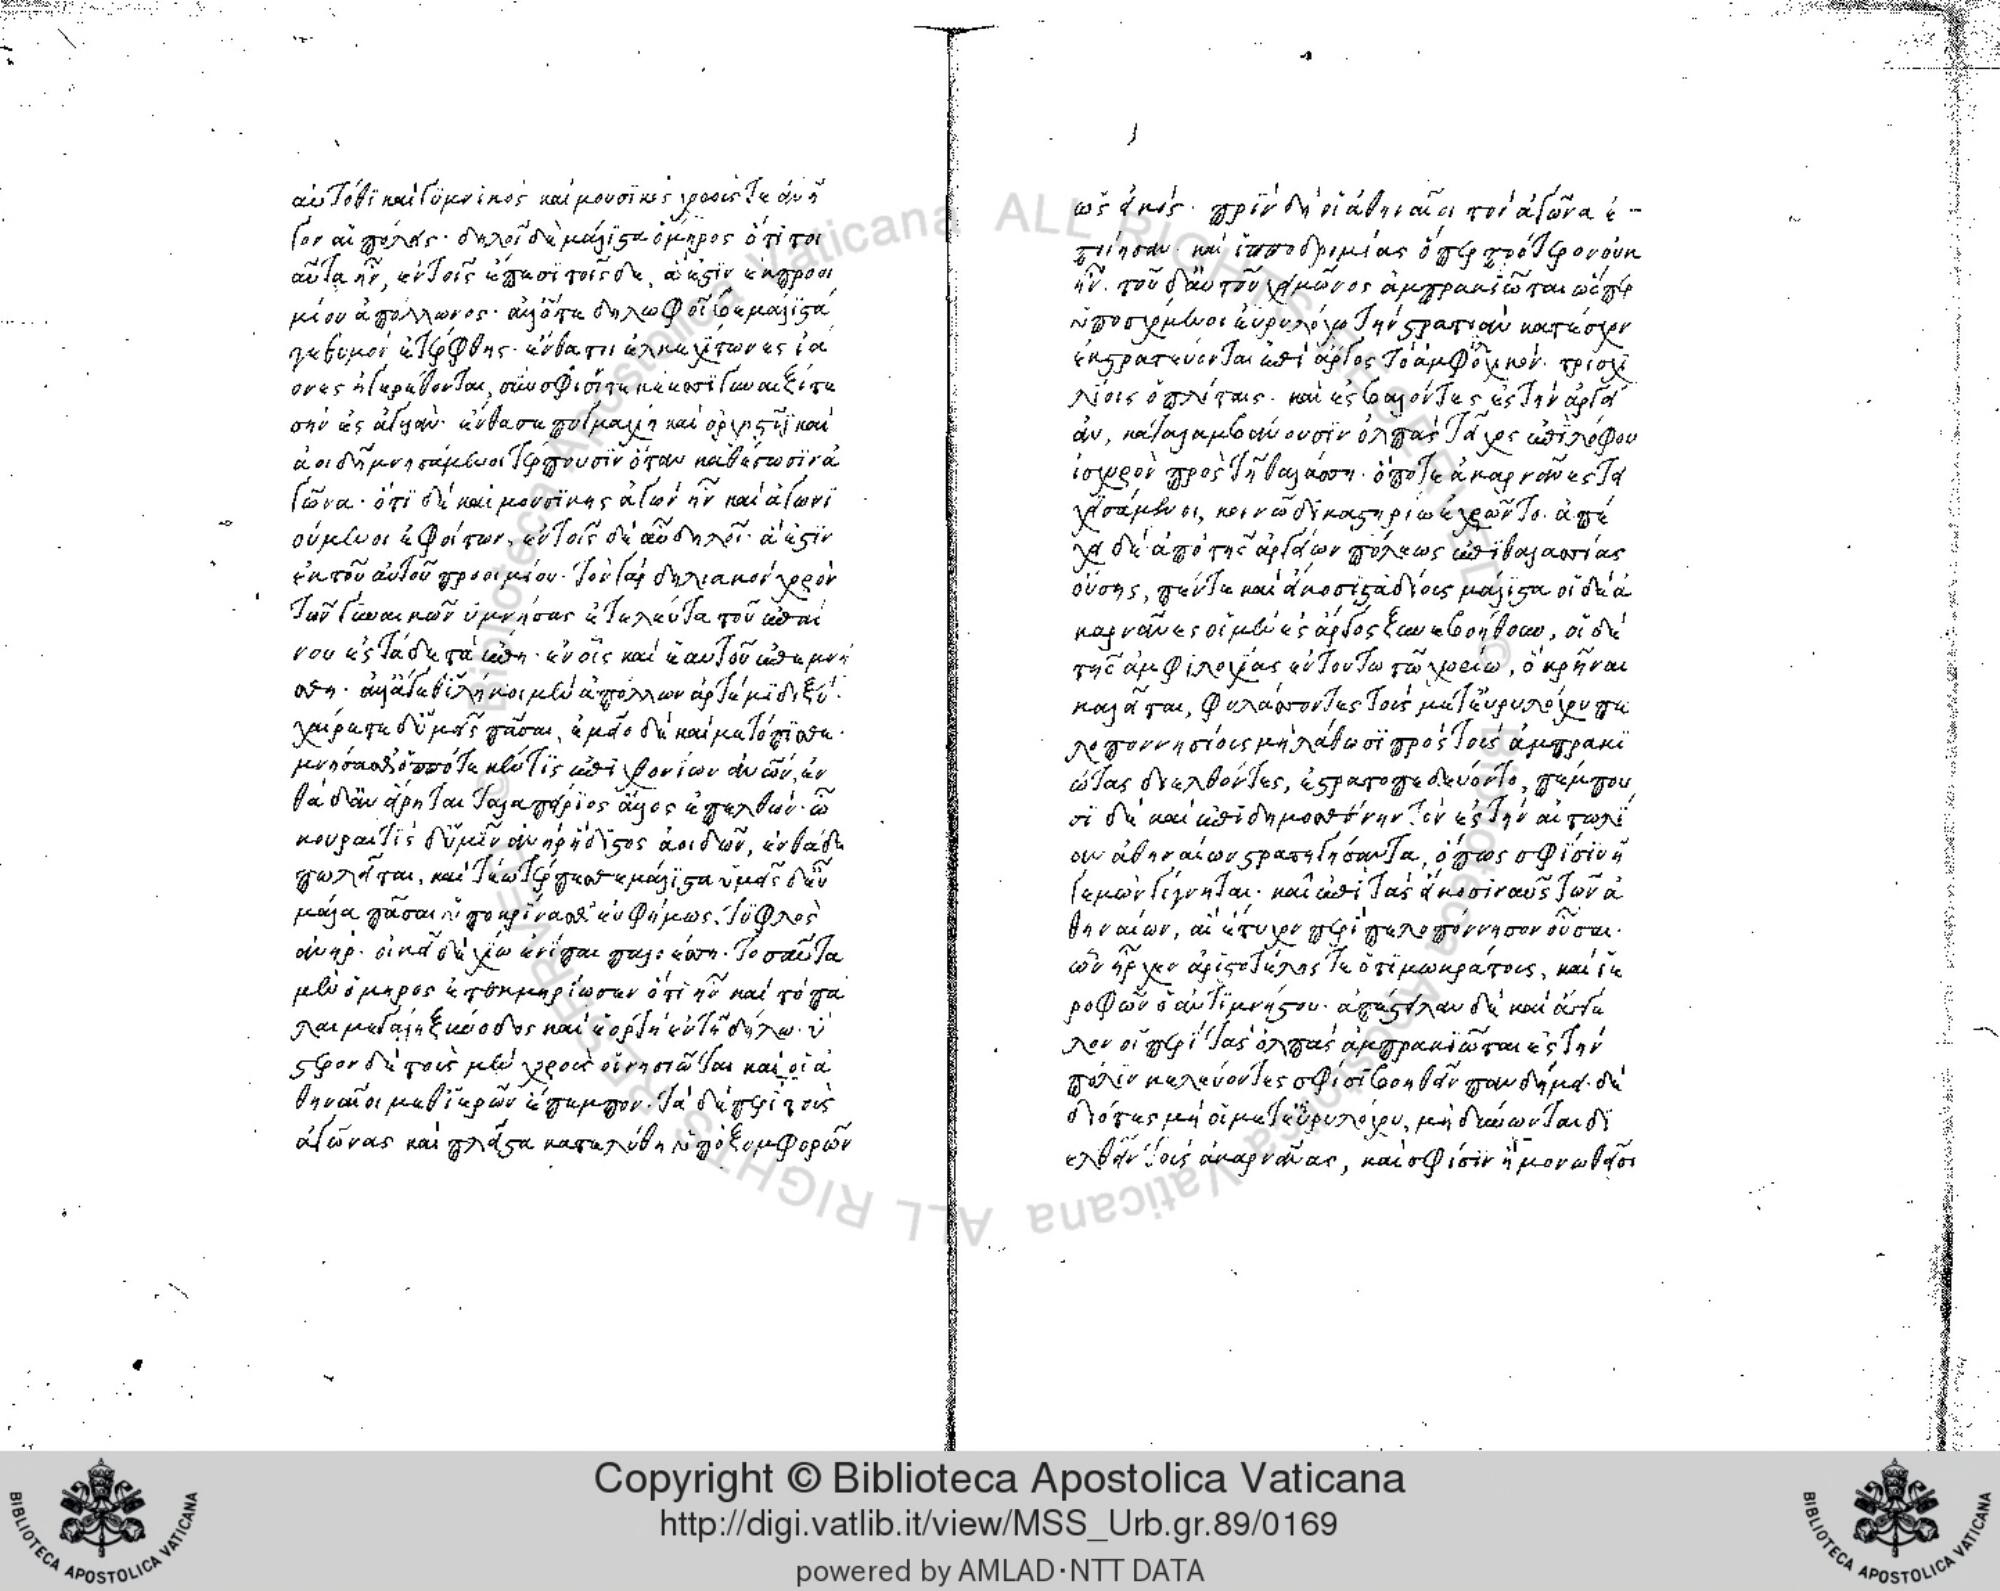 αὐτόθι καὶ γυμνικὸς καὶ μουσικὸς χορούς τε ἀνῆ
γον αἱ πόλεις· δηλοῖ δὲ μάλιστα ὅμηρος ὅτι τοι
αῦτα ἦν, ἐν τοῖς ἔπεσι τοῖσδε, ἅ ἐστιν ἐκ προοι
μίου ἀπόλλωνος· ἀλλ᾽ ὅτε δήλω φοῖβε μάλιστα
γε θυμὸν ἐτέρφθης· ἔνθα τοι ἑλκεχίτωνες ἰά
ονες ἠγερέθονται, σὺν σφίσι τεκέεσσι γυναιξί τε
σὴν ἐς ἀγυιάν· ἔνθα σε πυγμαχίη καὶ ὀρχηστυῖ καὶ
ἀοιδῆ μνησάμενοι τέρπουσιν ὅταν καθέσωσιν ἀ
γῶνα· ὅτι δὲ καὶ μουσικῆς ἀγὼν ἦν καὶ ἀγωνι
ούμενοι ἐφοίτων, ἐν τοῖς δὲ αὖ δηλοῖ· ἅ ἐστιν
ἐκ τοῦ αὐτοῦ προοιμίου· τὸν γὰρ δηλιακὸν χορὸν
τῶν γυναικῶν ὑμνήσας ἐτελεύτα τοῦ ἐπαί
νου ἐς τάδε τὰ ἔπη· ἐν οἷς καὶ ἑαυτοῦ ἐπεμνή
σθη· ἀλλ᾽ ἄγεθ᾽ ἱλήκοι μὲν ἀπόλλων ἀρτέμιδι ξύ·
χαίρετε δ᾽ ὑμεῖς πᾶσαι, ἐμεῖο δὲ καὶ μετόπισθε·
μνήσασθ᾽ ὁππότε κέν τις ἐπιχθονίων ἀνων, ἐν
θά δ᾽ ἂν εἴρηται ταλαπείριος ἄλλος ἐπελθών· ὦ
κοῦραι τίς δ᾽ ὕμιν ἀνὴρ ἥδιστος ἀοιδῶν, ἐνθάδε
πωλεῖται, καὶ τέω τέρπεσθε μάλιστα ὑμεῖς δ᾽ εὖ
μάλα πᾶσαι ὑποκρίνασθ᾽ εὐφήμως, τυφλὸς
ἀνὴρ· οἰκεῖ δὲ χίω ἔνι παιπαλοέσση· τοσαῦτα
μὲν ὅμηρος ἐτεκμηρίωσεν ὅτι ἦν καὶ τὸ πά
λαι μεγάλη ξύνοδος καὶ ἑορτὴ ἐν τῆ δήλω· ὕ
στερον δὲ τοὺς μὲν χοροὺς οἱ νησιῶται καὶ οἱ ἀ
θηναῖοι μεθ᾽ ἱερῶν ἔπεμπον· τὰ δὲ περὶ τοὺς
ἀγῶνας καὶ πλεῖστα κατελύθη ὑπὸ ξυμφορῶν
ὡς εἰκός· πρὶν δὴ οἱ ἀθηναῖοι τὸν ἀγῶνα ἐ-
ποίησαν· καὶ ἱπποδρομίας ὅπερ πρότερον οὐκ
ἦν. τοῦ δ᾽ αὐτοῦ χειμῶνος ἀμπρακιῶται ὥσπερ
ὑποσχόμενοι εὐρυλόχω τὴν στρατιὰν κατέσχον
ἐκστρατεύονται ἐπὶ ἄργος τὸ ἀμφιλοχικὸν. τρισχι
λίοις ὁπλίταις· καὶ ἐσβαλόντες ἐς τὴν ἀργεί
αν, καταλαμβάνουσιν ὄλπας τεῖχος ἐπὶ λόφου
ἰσχυρὸν πρὸς τῆ θαλάσση· ὅ ποτε ἀκαρνᾶνες τει
χισάμενοι, κοινῶ δικαστηρίω ἐχρῶντο· ἀπέ
χει δὲ ἀπὸ τῆς ἀργείων πόλεως ἐπιθαλασσίας
οὔσης, πέντε καὶ εἴκοσι σταδίους μάλιστα οἱ δὲ ἀ
καρνᾶνες οἱ μὲν ἐς ἄργος ξυνεβοήθουν, οἱ δὲ
τῆς ἀμφιλοχίας ἐν τούτω τῶ χωρίω, ὃ κρῆναι
καλεῖται, φυλάσσοντες τοὺς μετ᾽ εὐρυλόχου πε
λοποννησίους μὴ λάθωσι πρὸς τοὺς ἀμπρακι
ώτας διελθόντες, ἐστρατοπεδεύοντο, πέμπου
σι δὲ καὶ ἐπὶ δημοσθένην τὸν ἐς τὴν αἰτωλί
αν ἀθηναίων στρατηγήσαντα, ὅπως σφίσιν ἡ
γεμὼν γίγνηται· καὶ ἐπὶ τὰς εἴκοσι ναῦς τῶν ἀ
θηναίων, αἳ ἔτυχον περὶ πελοπόννησον οὖσαι.
ὧν ἦρχεν ἀριστοτέλης τε ὁ τιμοκράτους, καὶ ἱε
ροφῶν ὁ ἀντιμνήστου· ἀπέστειλαν δὲ καὶ ἄγγε
λον οἱ περὶ τὰς ὄλπας ἀμπρακιῶται ἐς τὴν
πόλιν κελεύοντες σφίσι βοηθεῖν πανδημεί· δε
διότες μὴ οἱ μετ᾽ εὐρυλόχου, μὴ δύνωνται δι
ελθεῖν τοὺς ἀκαρνᾶνας, καὶ σφίσιν ἢ μονωθεῖσι
Copyright © Biblioteca Apostolica Vaticana
http://digi.vatlib.it/view/MSS_Urb.gr.89/0169
powered by AMLAD·NTT DATA
BIBLIOTECA APOSTOLICA VATICANA
BIBLIOTECA APOSTOLICA VATICANA